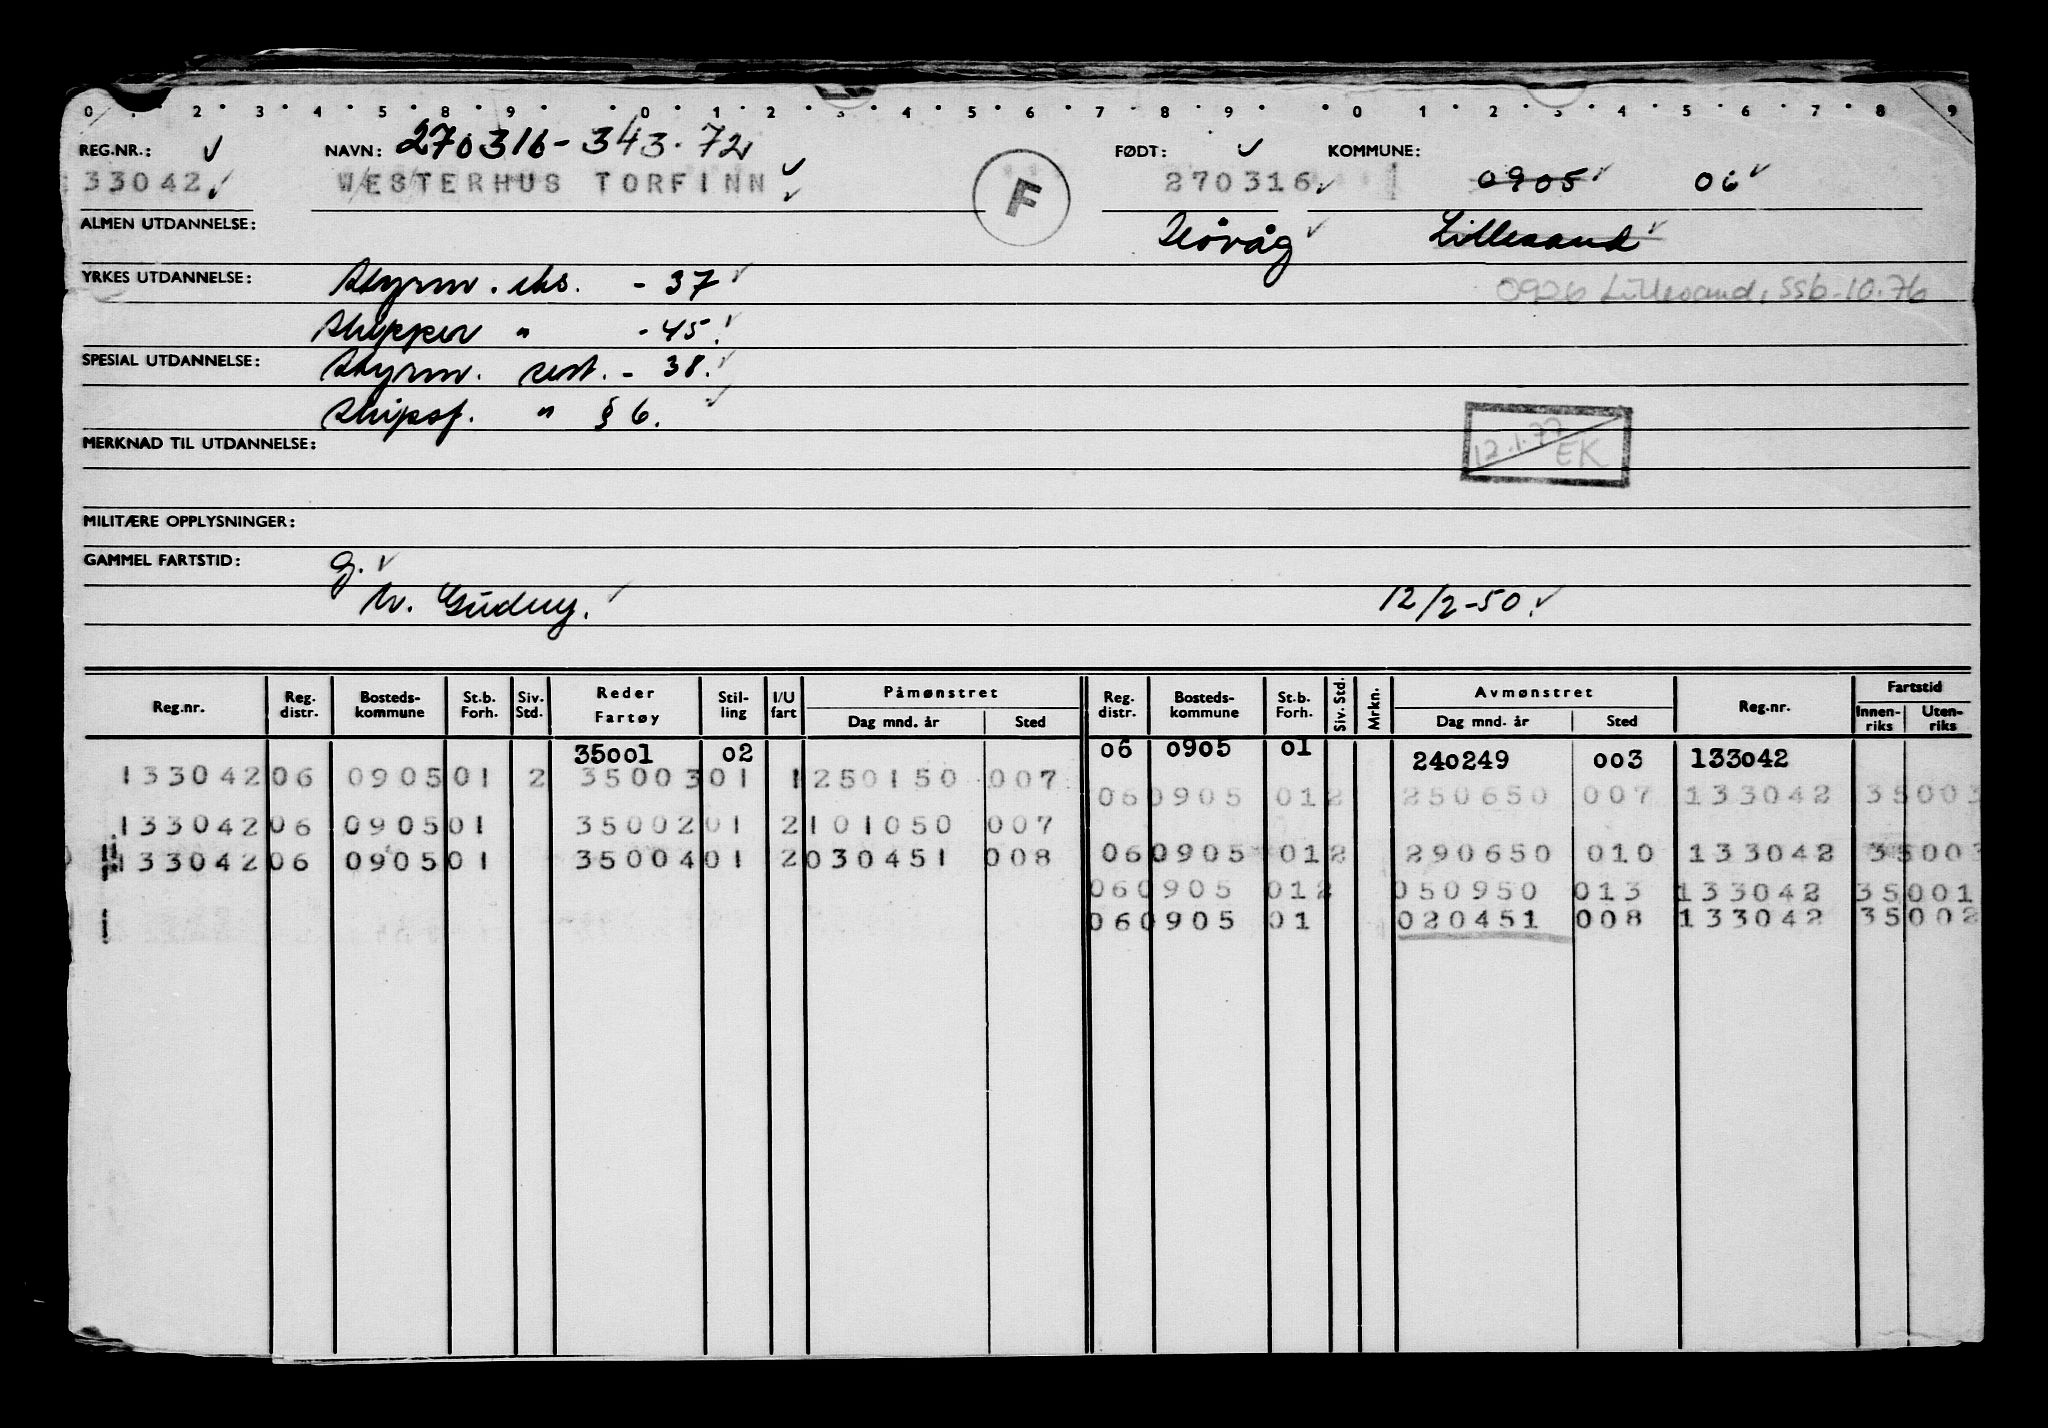 0 1 2 3 4 5 8 9 0 1 2 3 4 5 6 7 8 9 0 1 2 3 4 5 6 7 8 9
REG.NR.: NAVN: 270316-343.72 FØDT: KOMMUNE:
33042 WESTERHUS TORFINN F 270316 0905 06
ALMEN UTDANNELSE: Høvåg Lillesand
YRKES UTDANNELSE: Styrm. eks. - 37 0926 Lillesand, SSb-10.76
Skipper " - 45.
SPESIAL UTDANNELSE: Styrm. sert. - 38.
Skipsf. " § 6.
MERKNAD TIL UTDANNELSE: 12.1.77 EK
MILITÆRE OPPLYSNINGER:
GAMMEL FARTSTID: g.
12/2-50.
Reg.nr. Reg. distr. Bosteds-kommune St.b. Forh. Siv. Std. Reder Fartøy Stil-ling I/U fart Påmønstret Dag mnd. år Sted Reg. distr. Bosteds-kommune St.b. Forh. Siv. Std. Mrkn. Avmønstret Dag mnd. år Sted Reg.nr. Fartstid Innen-riks Uten-riks
35001 02 06 0905 01 240249 003 133042
133042 06 0905 01 2 35003 01 1 250150 007
06 0905 01 2 250650 007 133042 35003
133042 06 0905 01 35002 01 2 101050 007
133042 06 0905 01 35004 01 2 030451 008 06 0905 01 2 290650 010 133042 35003
06 0905 01 2 050950 013 133042 35001
06 0905 01 020451 008 133042 35002